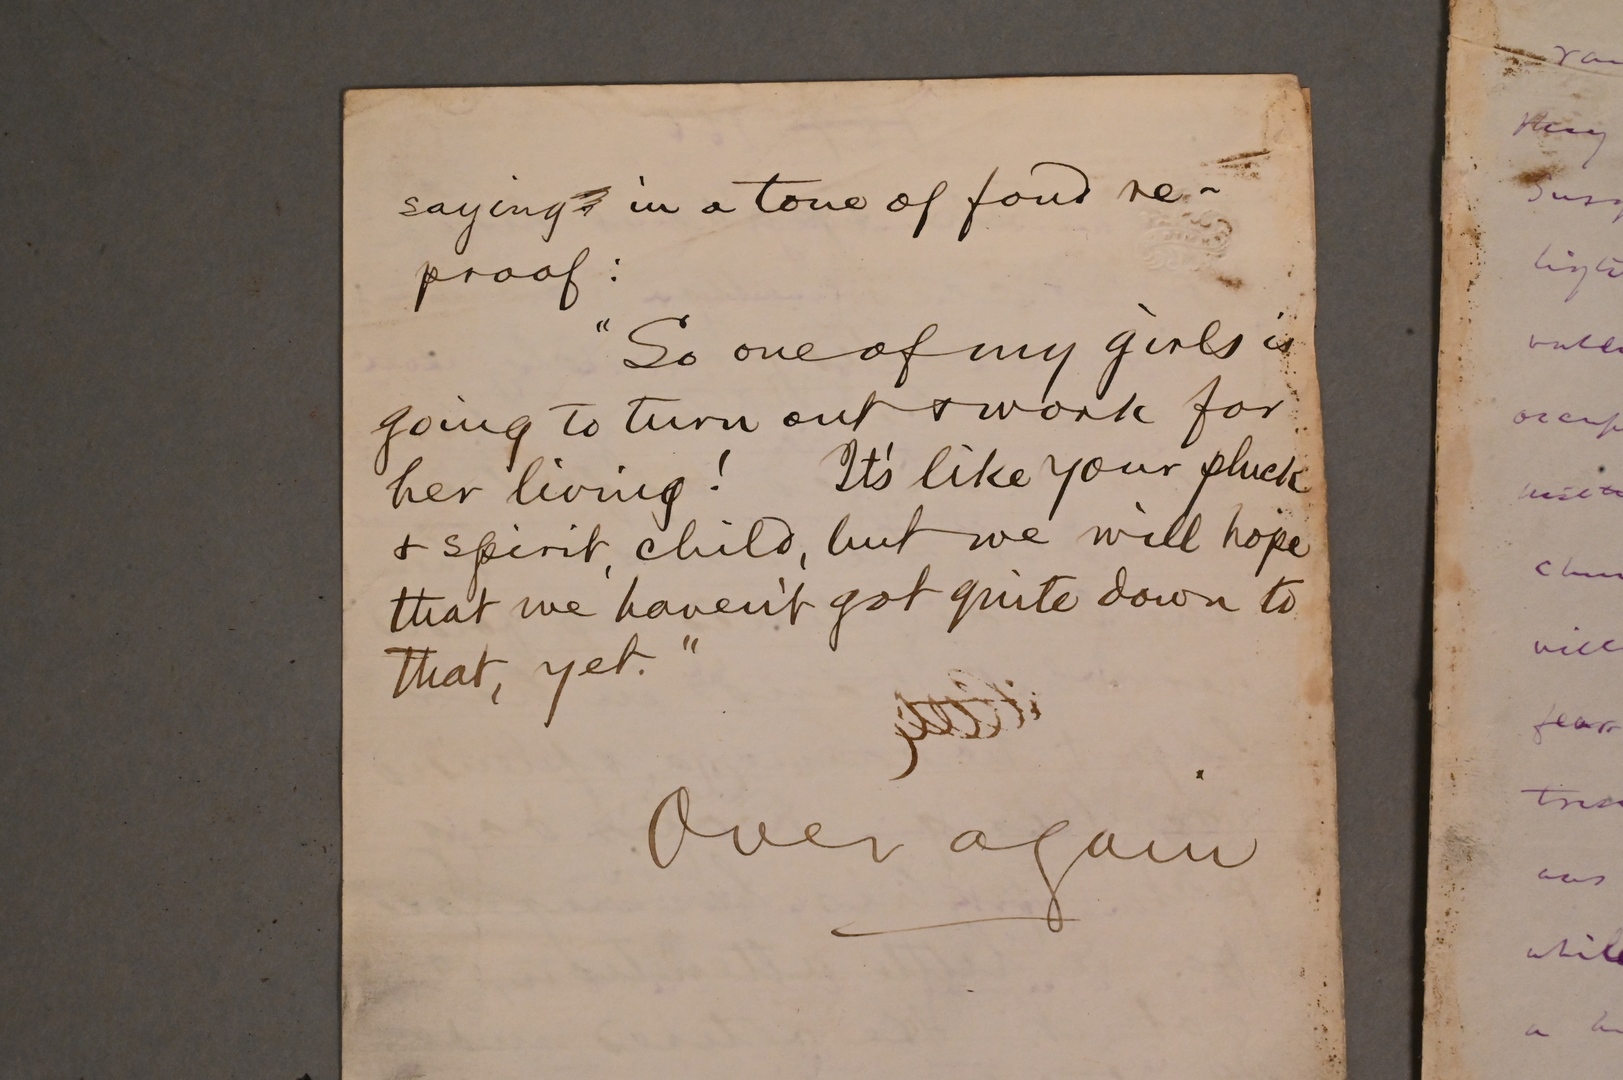 saying in a tone of fond re-
proof:
"So one of my girls is
going to turn out & work for
her living! It's like your pluck
& spirit, child, but we will hope
that we haven't got quite down to
that, yet."
Over again
ran
they
will
was
while
a